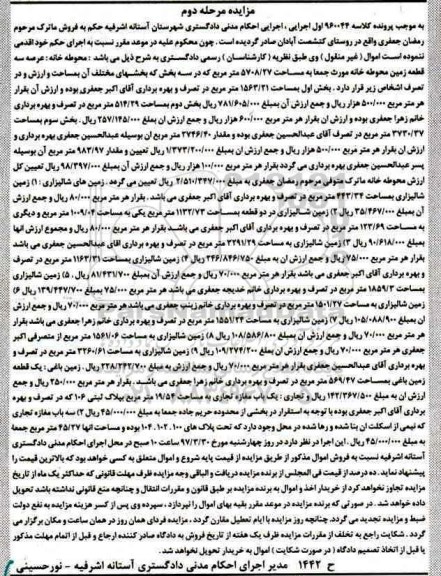 مزایده مرحله دوم
به موجب پرونده کلاسه ۹۶۰۰۴۴ اول اجرایی ، اجرایی احکام مدنی دادگستری شهرستان آستانه اشرفیه حکم به فروش ماترک مرحوم
رمضان جعفری واقع در روستای کنشصت آبادان صادر گردیده است . چون محکوم علیه در موعد مقرر نسبت به اجرای حکم خود اقدمی
ننموده است اموال (غیر منقول ) وی طبق نظریه ( کارشناسان ) رسمی دادگستری به شرح ذیل می باشد : محوطه خانه : عرصه سه
قطعه زمین محوطه خانه مورث جمعا به مساحت ۵۷۰۸/۲۷ متر مربع که در سه بخش که بخشهای مختلف آن بمساحت و ارزش و در
تصرف اشخاص زیر قرار دارد . بخش اول بمساحت ۱۵۶۳/۲۱ متر مربع در تصرف و بهره برداری آقای اکبر جعفری بوده و ارزش آن بقرار
هر متر مربع ۵۰۰/۰۰۰ ریال و جمع ارزش آن بمبلغ ۷۸۱/۶۰۵/۰۰۰ ریال بخش دوم بمساحت ۵۱۴/۲۹ متر مربع در تصرف و بهره برداری
خانم زهرا جعفری بوده و ارزش ان بقرار هر متر مربع ۶۰۰/۰۰۰ هزار ریال و جمع ارزش آن بمبلغ ۲۵۷/۱۴۵/۰۰۰ ریال . بخش سوم بمساحت
۳۷۳۰/۳۷ متر مربع در تصرف آقای عبدالحسین جعفری بوده و مقدار ۲۷۴۶/۴۰ متر مربع ان بوسیله عبدالحسین جعفری بهره برداری و
ارزش ان بقرار هر متر مربع ۵۰۰/۰۰۰ هزار ریال و جمع ارزش آن بمبلغ ۱/۳۷۳/۲۰۰/۰۰۰ ریال تعیین و مقدار ۹۸۳/۹۷ متر مربع آن بوسیله
پسر عبدالحسین جعفری بهره برداری می گردد بقرار هر متر مربع ۱۰۰/۰۰۰ هزار ریال و جمع ارزش آن بمبلغ ۹۸/۳۹۷/۰۰۰ ریال تعیین کل
ارزش محوطه خانه ماترک متوفی مرحوم رمضان جعفری به مبلغ ۲/۵۱۰/۳۴۷/۰۰۰ ریال تعیین می گردد . زمین های شالیزاری : ۱) زمین
شالیزاری بمساحت ۴۴۳/۳۴ متر مربع در تصرف و بهره برداری آقای اکبر جعفری می باشد . بقرار هر متر مربع ۸۰/۰۰۰ ریال و جمع ارزش
آن بمبلغ ۳۵/۴۶۷/۰۰۰ ریال ۲) زمین شالیزاری در دو قطعه بمساحت ۱۱۳۲/۷۳ متر مربع یکی به مساحت ۱۰۰۹/۰۴ متر مربع و دیگری
به مساحت ۱۲۳/۶۹ متر مربع در تصرف و بهره برداری آقای اکبر جعفری می باشد بقرار هر متر مربع ۸۰/۰۰۰ ریال و مجموع ارزش آنها
به مبلغ ۹۰/۶۱۸/۰۰۰ ریال ۳) زمین شالیزاری به مساحت ۲۲۹۱/۲۹ متر مربع در تصرف و بهره برداری اقای عبدالحسین جعفری می باشد
بقرار هر متر مربع ۷۵/۰۰۰ ریال و جمع ارزش آن به مبلغ ۲۴۶/۸۴۶/۷۵۰ ریال ۴) زمین شالیزاری به مساحت ۱۱۶۳/۳۱ متر مربع در تصرف
و بهره برداری آقای اکبر جعفری می باشد بقرار هر متر مربع ۷۰/۰۰۰ ریال و جمع ارزش آن بمبلغ ۸۱/۴۳۱/۷۰۰ ریال . ۵) زمین شالیزاری
بمساحت ۱۸۵۹/۳ متر مربع در تصرف و بهره برداری خانم خدیجه جعفری می باشد هر متر مربع ۷۵/۰۰۰ بمبلغ ۱۳۹/۴۴۷/۷۰۰ ریال ۶)
زمین شالیزاری به مساحت ۱۵۰۱/۲۷ متر مربع در تصرف و بهره برداری خانم زینب جعفری می باشد هر متر مربع ۷۰/۰۰۰ و جمع ارزش
آن بمبلغ ۱۰۵/۰۸۸/۹۰۰ ریال ۷) زمین شالیزاری به مساحت ۱۵۵۱/۲۴ متر مربع در تصرف و بهره برداری خانم زهرا جعفری می باشد بقرار
هر متر مربع ۷۰/۰۰۰ ریال و جمع ارزش ان بمبلغ ۱۰۸/۵۸۶/۸۰۰ ریال ۸) زمین شالیزاری به مساحت ۱۵۶۱/۰۶ متر مربع از متصرفی اکبر
جعفری هر متر مربع ۷۰/۰۰۰ ریال و جمع ارزش ان بمبلغ ۱۰۹/۲۷۴/۲۰۰ ریال ۹) زمین شالیزاری به مساحت ۳۲۶۰/۶۱ متر مربع در تصرف و
بهره برداری آقای عبدالحسین جعفری بقرار هر متر مربع ۷۰/۰۰۰ ریال و جمع ارزش به مبلغ ۲۲۸/۲۴۲/۷۰۰ ریال . زمین باغی : یک قطعه
زمین باغی بمساحت ۵۶۹/۴۷ متر مربع در تصرف و بهره برداری خانم زهرا جعفری می باشد . بقرار هر متر مربع ۲۵۰/۰۰۰ ریال و جمع
ارزش ان به مبلغ ۱۴۲/۳۶۷/۵۰۰ ریال و تجاری : یک باب مغازه تجاری به مساحت ۱۹/۵۲ متر مربع بپلاک ثبتی ۱۰۶ که در تصرف و بهره
برداری آقای اکبر جعفری بوده با توجه به استقرار در بخشی از محدوده حریم جاده جمعا به مبلغ ۴۵/۰۰۰/۰۰۰ ریال ۲) سه باب مغازه تجاری
که نیمی از اسکلت ان بنا شده و رها شده در محل وجود دارد که تحت پلاک های ۱۰۰. ۱۰۲. ۱۰۴ بوده و مساحت انها ۴۵/۲۷ متر مربع جمعا
به مبلغ ۴۵/۰۰۰/۰۰۰ ریال . این اجرا در نظر دارد در روز چهارشنبه مورخ ۹۷/۳/۳۰ ساعت ۱۰ صبح در محل اجرای احکام مدنی دادگستری
آستانه اشرفیه نسبت به فروش اموال مذکور از طریق مزایده از قیمت پایه شروع و اموال متعلق به کسی خواهد بود که بالاترین قیمت را
پیشنهاد نماید . ده درصد از قیمت فی المجلس از برنده مزایده دریافت و الباقی وجه مزایده ظرف مهلت قانونی که حداکثر یک ماه از تاریخ
مزایده تجاوز نخواهد کرد از خریدار اخذ و اموال به برنده مزایده بر طبق قانون و مقررات انتقال و چنانچه منع قانونی نداشته باشد تحویل
داده خواهد شد . در صورتی که برنده مزایده در موعد مقرر بقیه بهای اموال را نپردازد ، سپرده وی پس از کسر هزینه مزایده به نفع دولت
ضبط و مزایده تجدید می گردد. چنانچه روز مزایده با ایام تعطیل مقارن گردد ، مزایده فردای همان روز در همان ساعت و مکان برگزار می
گردد . شکایت راجع به تخلف از مقررات مزایده ظرف یک هفته از تاریخ فروش به دادگاه صادر کننده ارجاع و قبل از اتمام مهلت مذکور
یا قبل از اتخاذ تصمیم دادگاه ( در صورت شکایت ) اموال به خریدار تحویل نخواهد شد.
ح ۱۴۴۲ مدیر اجرای احکام مدنی دادگستری آستانه اشرفیه - نورحسینی